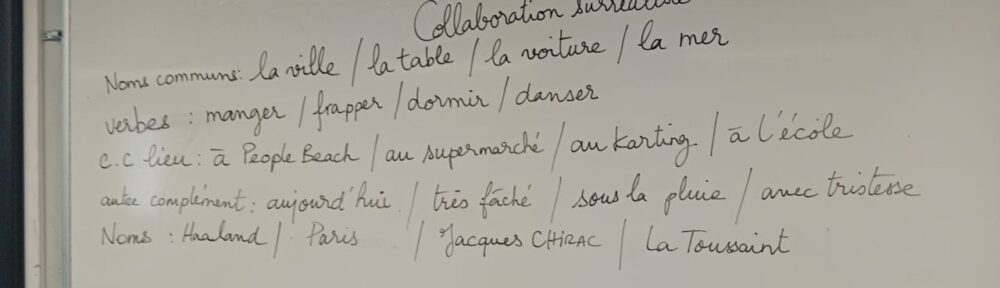 Collaboration surréaliste
Noms communs: la ville / la table / la voiture / la mer
verbes : manger / frapper / dormir / danser
c.c lieu : à People Beach / au supermarché / au karting / à l'école
autre complément : aujourd'hui / très fâché / sous la pluie / avec tristesse
Noms : Haaland / Paris / Jacques CHIRAC / La Toussaint